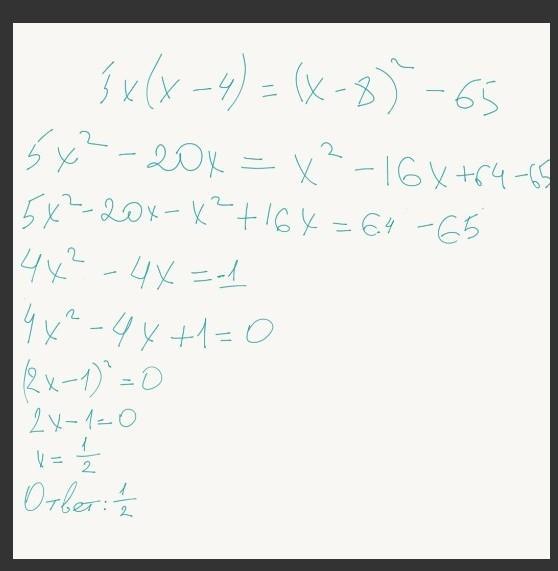 5x(x-4)=(x-8)²-65
5x²-20x=x²-16x+64-65
5x²-20x-x²+16x=64-65
4x²-4x=-1
4x²-4x+1=0
(2x-1)²=0
2x-1=0
x=1/2
Ответ: 1/2